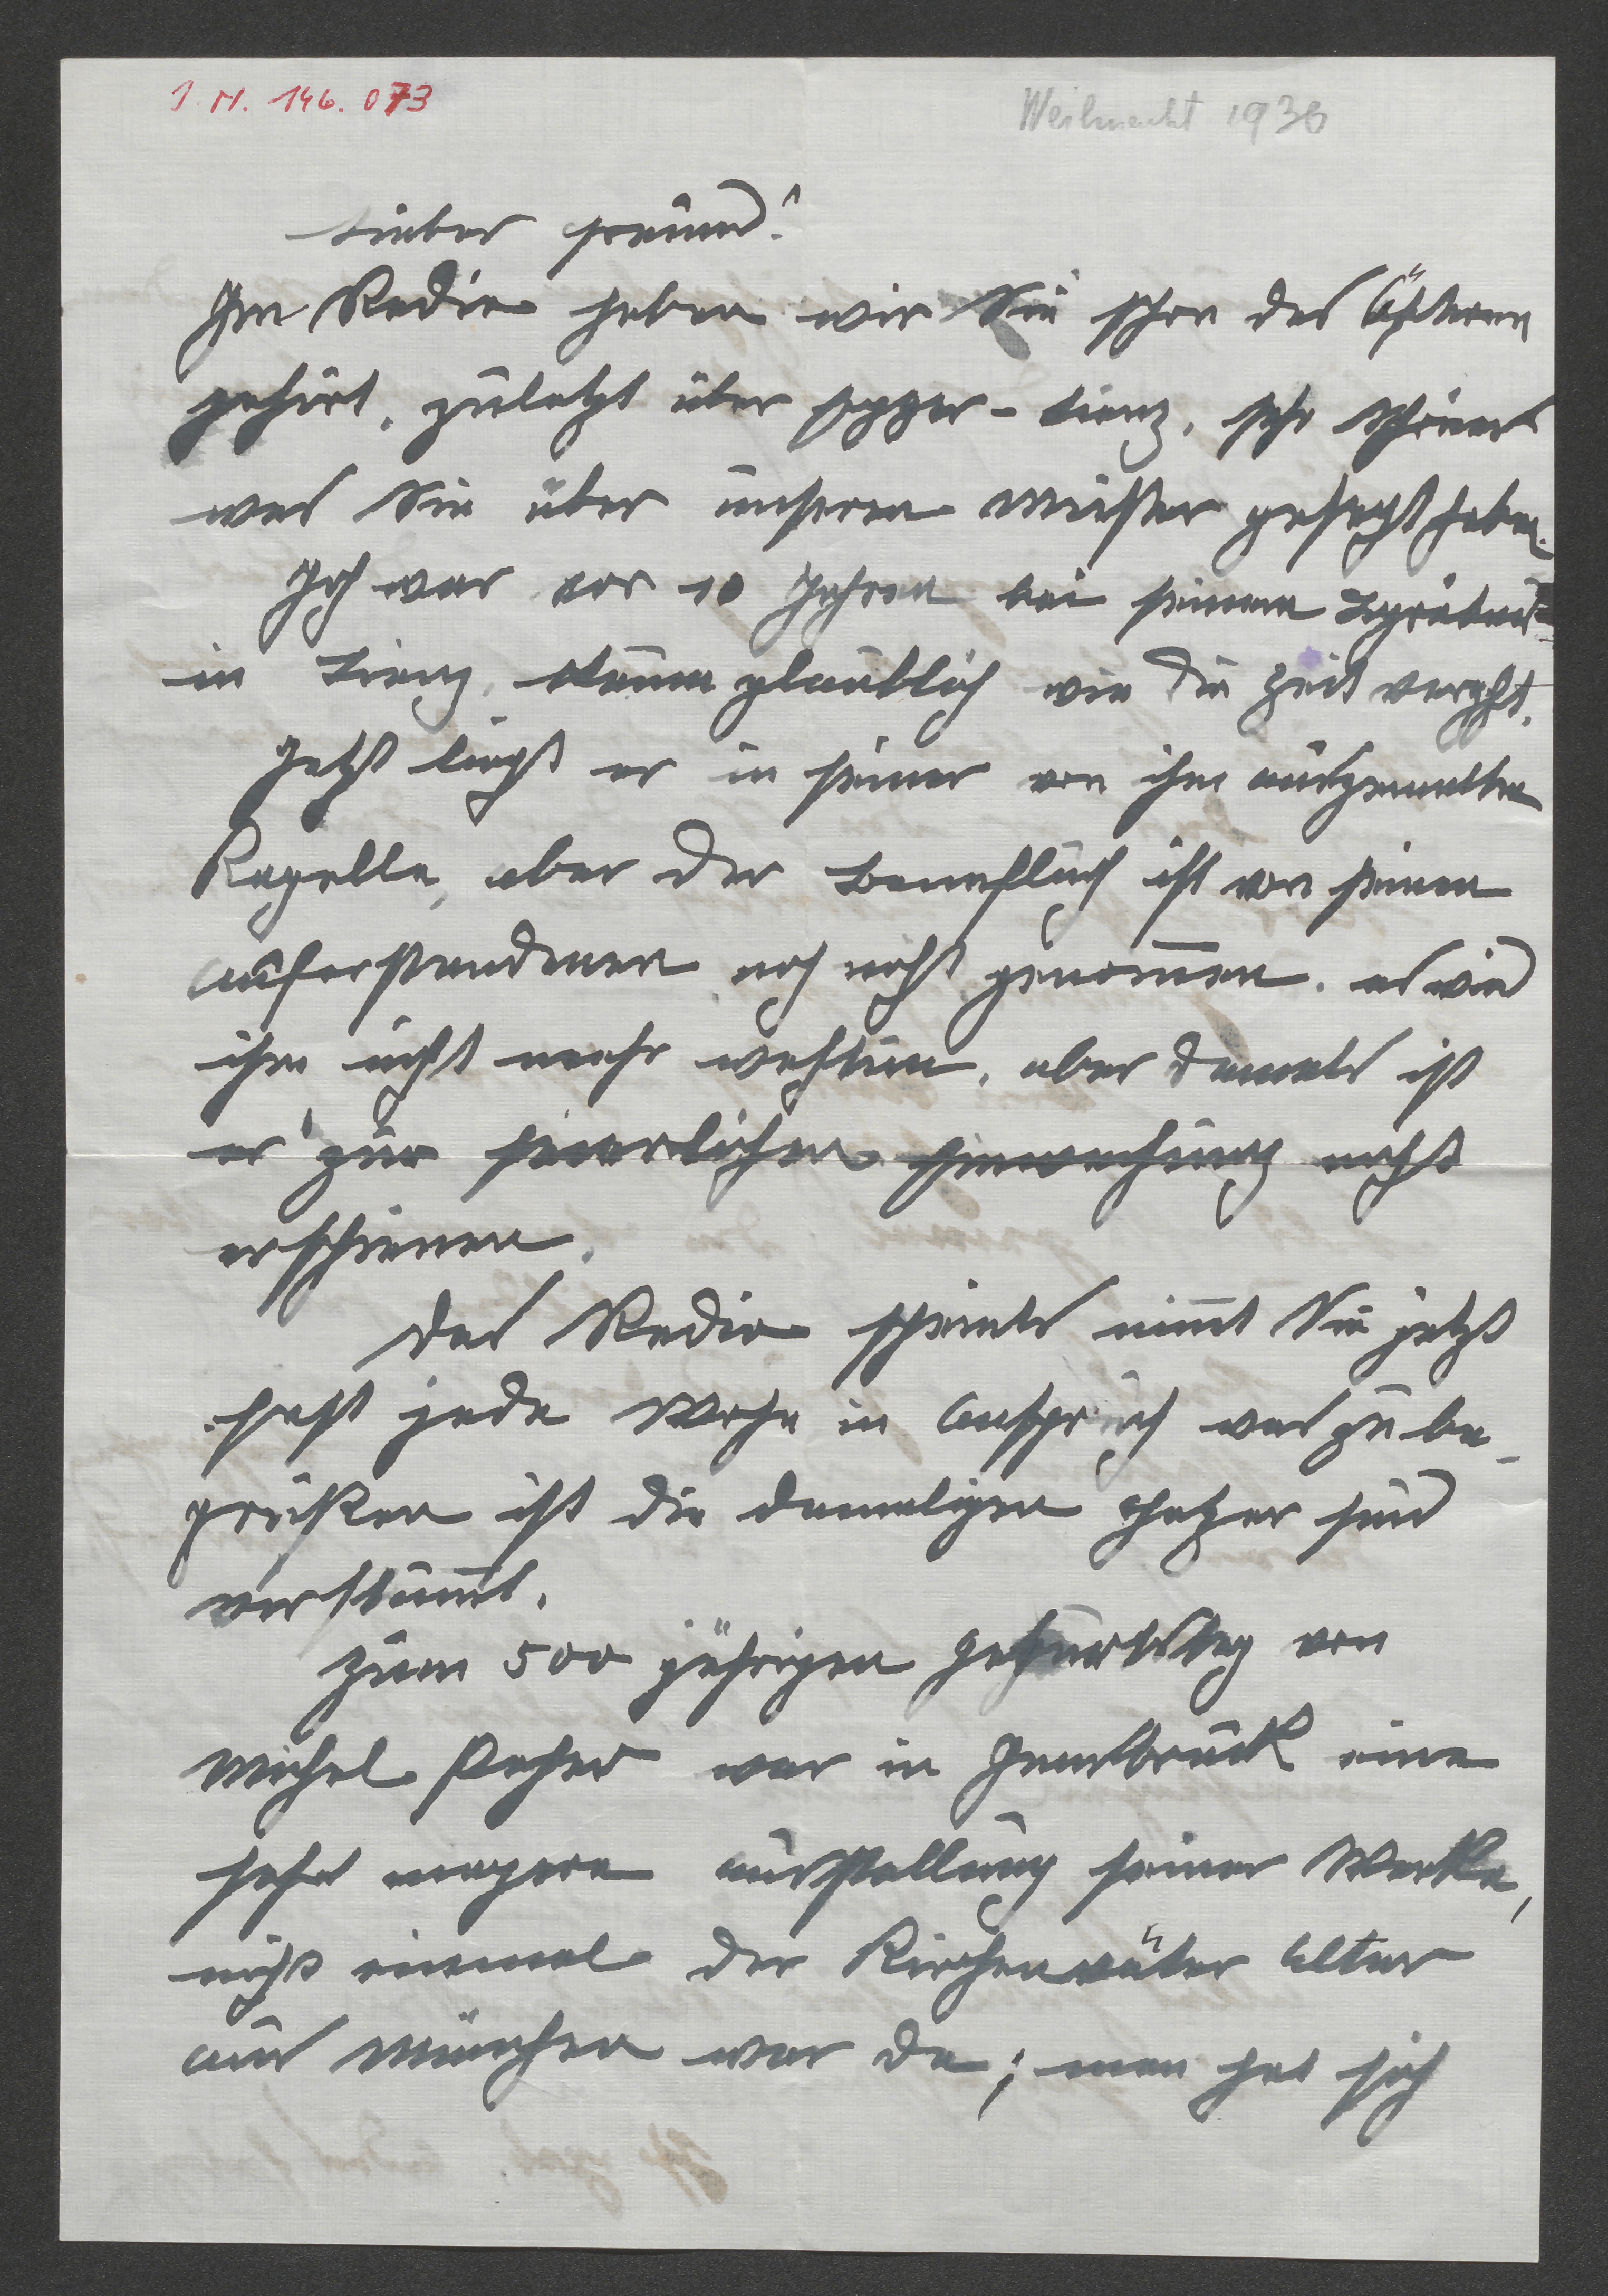 I. N. 146.073
Weihnacht 1936
Lieber Freund!
Im Radio haben wir Sie schon des Öfteren
gehört, zuletzt über Egger-Lienz, sehr schön
was Sie über unseren Meister gesagt haben.
Ich war vor 10 Jahren bei seinem Begräbnis
in Lienz, kaum glaublich wie die Zeit vergeht.
Jetzt liegt er in seiner von ihm ausgemalten
Kapelle, aber der Bannfluch ist von seinem
Auferstandenen noch nicht genom̄en. es wird
ihm nicht mehr wehtun, aber damals ist
er zur feierlichen nicht
erschienen.
Das Radio scheints nim̄t Sie jetzt
fast jede Woche in Anspruch was zu be-
grüßen ist die damaligen Hetzer sind
verstum̄t.
Zum 500 jährigen Geburtstag von
Michel Pacher war in Innsbruck eine
sehr magere Ausstellung seiner Werke,
nicht einmal der Kirchenväter Altar
aus München war da; man hat sich